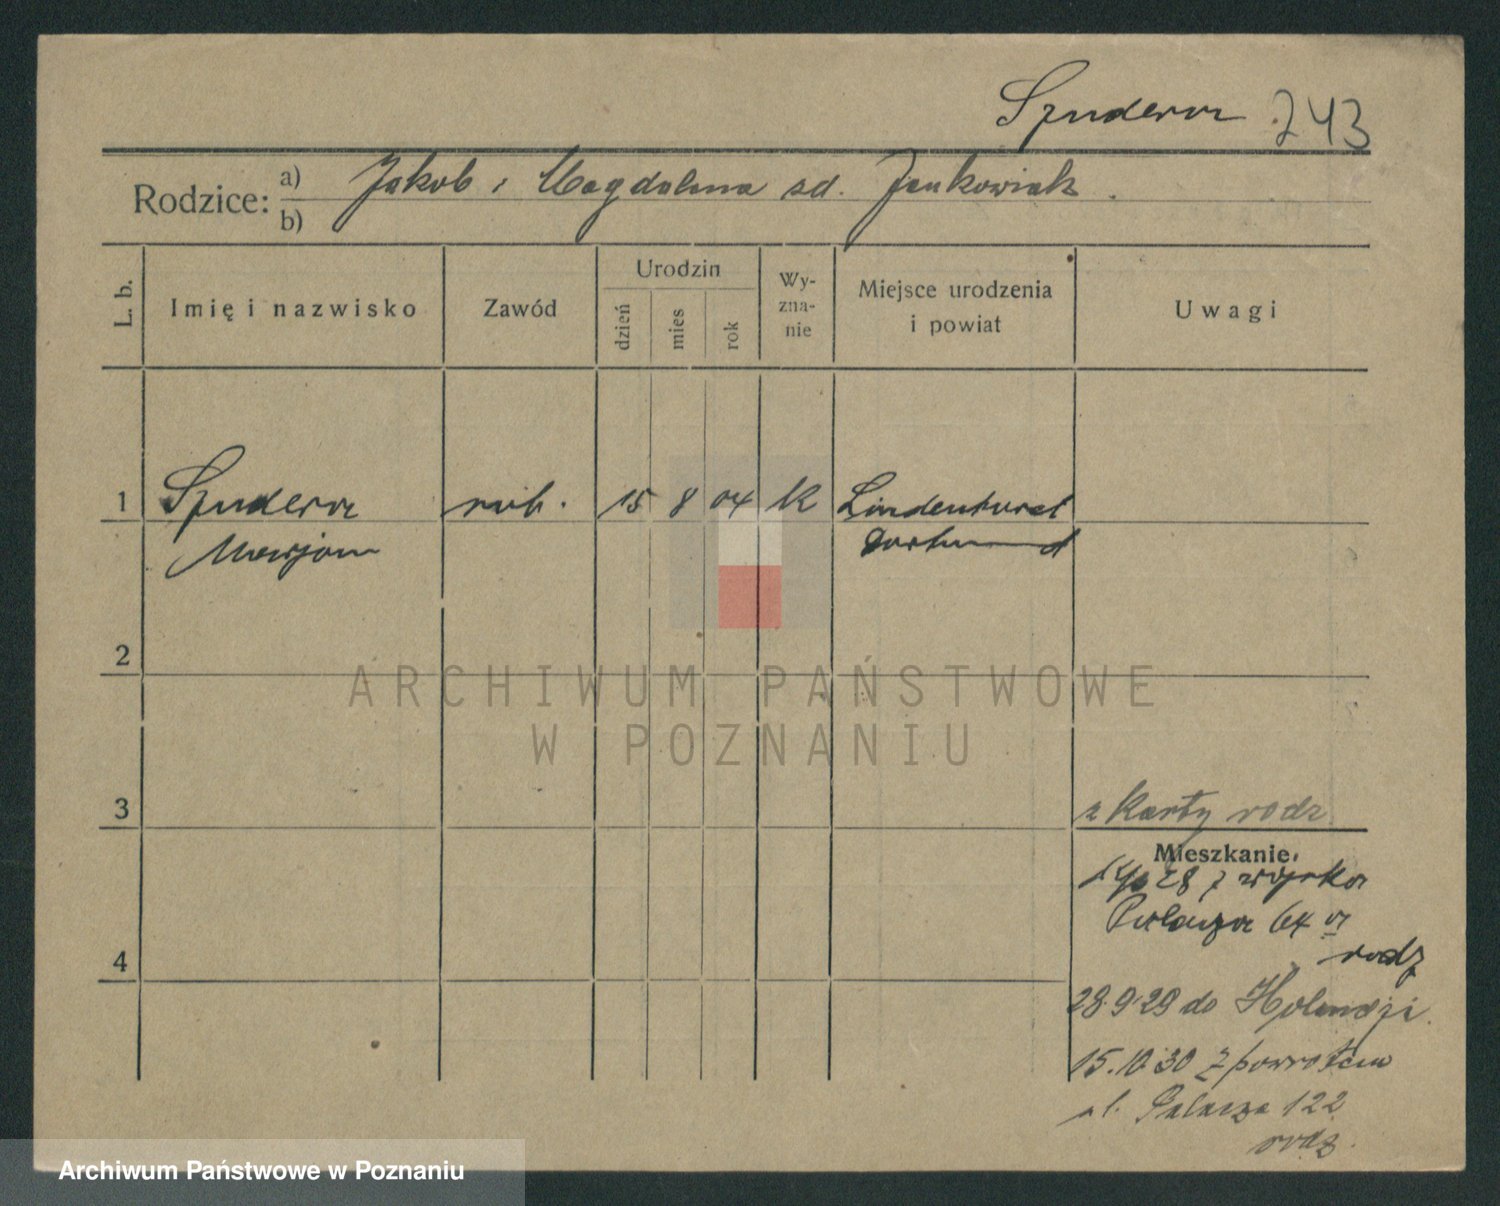 Szudera 243
Rodzice: a) Jakob i Magdalena sd. Jankowiak
b)
L. b.
Imię i nazwisko
Zawód
Urodzin
dzień
mies
rok
Wy-
zna-
nie
Miejsce urodzenia
i powiat
Uwagi
1 Szudera rob. 15 8 04 k Lindenhorst
Marjan Dortmund
2
ARCHIWUM PAŃSTWOWE
W POZNANIU
z karty rodz
3
Mieszkanie
28 z wojska
Palacza 64 a
rodz
4
28.9.29 do Holandji
15.10.30 z powrotem
ul. Palacza 122
rodz.
Archiwum Państwowe w Poznaniu